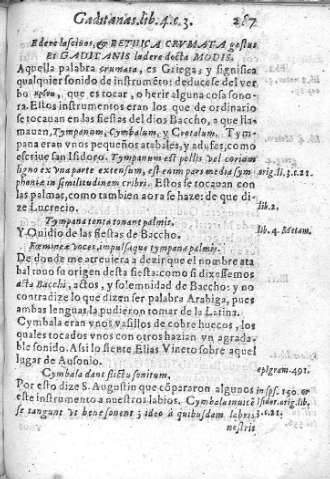 Gaditanas. lib. 4. c. 3. 287
Edere lasciuos, & BETHICA CRVMATA gestus
Et GADITANIS ludere docta MODIS.
Aquella palabra crumata, es Griega, y significa
qualquier sonido de instrumẽto: deducese del ver
bo que es tocar, o herir alguna cosa sono-
ra. Estos instrumentos eran los que de ordinario
se tocauan en las fiestas del dios Baccho, a que lla-
mauen, Tympanum, Cymbalum, y Crotalum. Tym-
pana eran vnos pequeños atabales, y adufes, como
escriue san Isidoro. Tympanum est pellis vel corium
ligno ex vna parte extensum, est enim pars media sym orig. li. 3. c. 21.
phoniæ in similitudinem cribri. Estos se tocauan con
las palmas, como tambien aora se haze: de que di-
ze Lucrecio. lib. 2.
Tympana tenta tonant palmis.
Y Ouidio de las fiestas de Baccho. lib. 4. Metam.
Fœmineæ voces, impulsaque tympana palmis.
De donde me atreuiera a dezir que el nombre ata
bal tuuo su origen desta fiesta: como si dixessemos
acta Bacchi, actos, y solemnidad de Baccho: y no
contradize lo que dizen ser palabra Arabiga, pues
ambas lenguas la pudieron tomar de la Latina.
Cymbala eran vnos vasillos de cobre huecos, los
quales tocados vnos con otros hazian vn agrada-
ble sonido. Assi lo siente Elias Vineto sobre aquel
lugar de Ausonio. epigram. 491.
Cymbala dant flictu sonitum.
Por esto dize S. Augustin que cõpararon algunos in ps. 150. et
este instrumento a nuestros labios. Cymbala inuicẽ Isidor. orig. lib.
se tangunt vt bene sonent, ideo à quibusdam labris 3. c. 21.
nostris